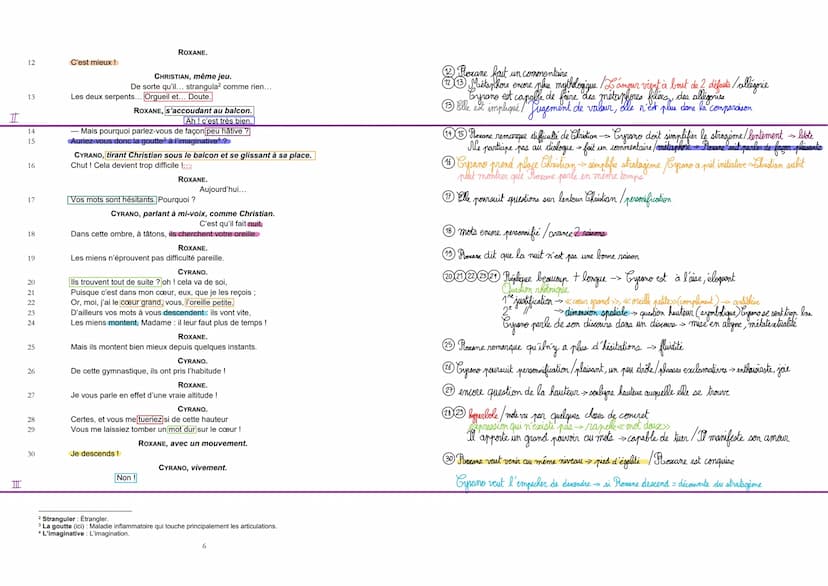 ROXANE.
12 C'est mieux !
CHRISTIAN, même jeu.
De sorte qu'il... strangula² comme rien...
13 Les deux serpents... Orgueil et... Doute.
ROXANE, s'accoudant au balcon.
Ah ! c'est très bien.
II
14 — Mais pourquoi parlez-vous de façon peu hâtive ?
15 Auriez-vous donc la goutte³ à l'imaginative⁴ ?
CYRANO, tirant Christian sous le balcon et se glissant à sa place.
16 Chut ! Cela devient trop difficile !...
ROXANE.
Aujourd'hui...
17 Vos mots sont hésitants. Pourquoi ?
CYRANO, parlant à mi-voix, comme Christian.
C'est qu'il fait nuit,
18 Dans cette ombre, à tâtons, ils cherchent votre oreille.
ROXANE.
19 Les miens n'éprouvent pas difficulté pareille.
CYRANO.
20 Ils trouvent tout de suite ? oh ! cela va de soi,
21 Puisque c'est dans mon cœur, eux, que je les reçois ;
22 Or, moi, j'ai le cœur grand, vous, l'oreille petite.
23 D'ailleurs vos mots à vous descendent : ils vont vite,
24 Les miens montent, Madame : il leur faut plus de temps !
ROXANE.
25 Mais ils montent bien mieux depuis quelques instants.
CYRANO.
26 De cette gymnastique, ils ont pris l'habitude !
ROXANE.
27 Je vous parle en effet d'une vraie altitude !
CYRANO.
28 Certes, et vous me tueriez si de cette hauteur
29 Vous me laissiez tomber un mot dur sur le cœur !
ROXANE, avec un mouvement.
30 Je descends !
CYRANO, vivement.
Non !
III
² Stranguler : Étrangler.
³ La goutte (ici) : Maladie inflammatoire qui touche principalement les articulations.
⁴ L'imaginative : L'imagination.
6
12 Roxane fait un commentaire
12 13 Métaphore encore plus mythologique / L'amour vient à bout de 2 défauts / allégorie
Cyrano est capable de faire des métaphores filées, des allégories
13 Elle est impliquée / Jugement de valeur, elle n'est plus dans la comparaison
14 15 Roxane remarque difficulté de Christian → Cyrano doit simplifier le stratagème / lentement →
Ne participe pas au dialogue → fait un commentaire / métaphore → Roxane parle de façon plaisante
16 Cyrano prend place Christian → simplifie stratagème / Cyrano a pris initiative → Christian subit
peut montrer que Roxane parle en même temps
17 Elle poursuit questions sur lenteur Christian / personnification
18 mots encore personnifié / avance 2 raisons
19 Roxane dit que la nuit n'est pas une bonne raison
20 21 22 23 24 Réplique beaucoup + longue → Cyrano est à l'aise, éloquent
Question rhétorique
1ère justification → « cœur grand », « oreille petite » (compliment) → antithèse
2e " → dimension spatiale → question hauteur (symbolique) Cyrano se sent trop bas
Cyrano parle de son discours dans un discours → mise en abyme, métathéâtralité
25 Roxane remarque qu'il n'y a plus d'hésitations → fluidité
26 Cyrano poursuit personnification / plaisant, un peu drôle / phrases exclamatives → enthousiaste, joie
27 encore question de la hauteur → souligne hauteur auquelle elle se trouve
28 29 hyperbole / mot vu par quelques choses de concret
expression qui n'existe pas → rappelle « mot doux »
Il apporte un grand pouvoir au mots → capable de tuer / Il manifeste son amour
30 Roxane veut venir au même niveau → pied d'égalité / Roxane est conquise
Cyrano veut l'empêcher de descendre → si Roxane descend = découverte du stratagème